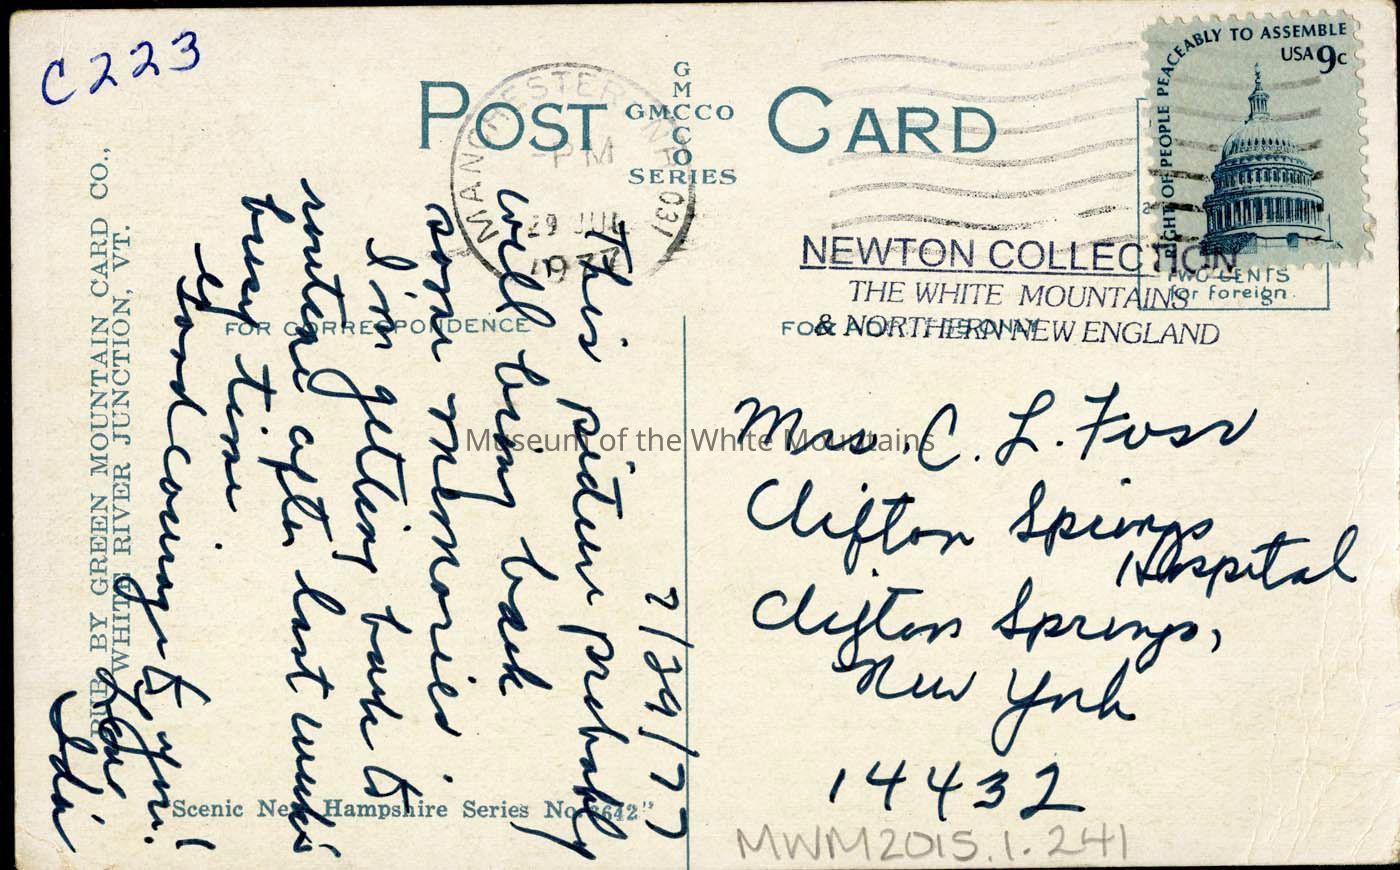 C223
POST CARD
GMCCO
GMCCO
SERIES
MANCHESTER NH 031
PM
29 JUL
1977
RIGHT OF PEOPLE PEACEABLY TO ASSEMBLE
USA 9c
TWO CENTS
for foreign.
NEWTON COLLECTION
THE WHITE MOUNTAINS
& NORTHERN NEW ENGLAND
FOR CORRESPONDENCE
FOR ONLY
PUB. BY GREEN MOUNTAIN CARD CO.,
WHITE RIVER JUNCTION, VT.
7/29/77
This picture probably
will bring back
some memories.
I'm getting back to
routine after last week's
busy time
Good courage to you!
Love
Ida
Mrs. C. L. Foss
Clifton Springs
Hospital
Clifton Springs,
New York
14432
"Scenic New Hampshire Series No. 3642"
MWM2015.1.241
Museum of the White Mountains